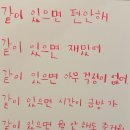 같이 있으면 편안해
같이 있으면 재밌어
같이 있으면 아무 걱정이 없어
같이 있으면 시간이 금방 가
같이 있으면 뭘 안 해도 즐거워